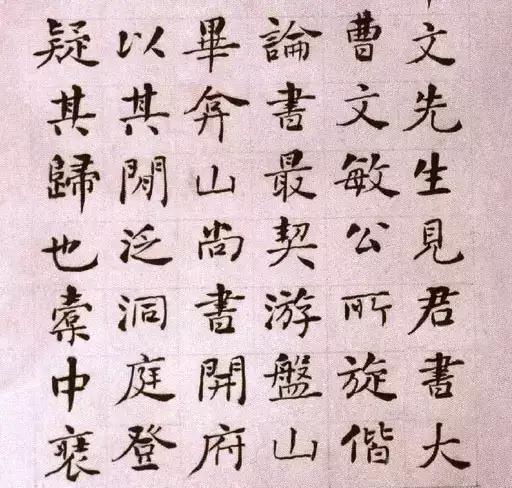 文先生見君書大
曹文敏公所旋偕
論書最契游盤山
畢弇山尚書開府
以其閒泛洞庭登
疑其歸也橐中裒